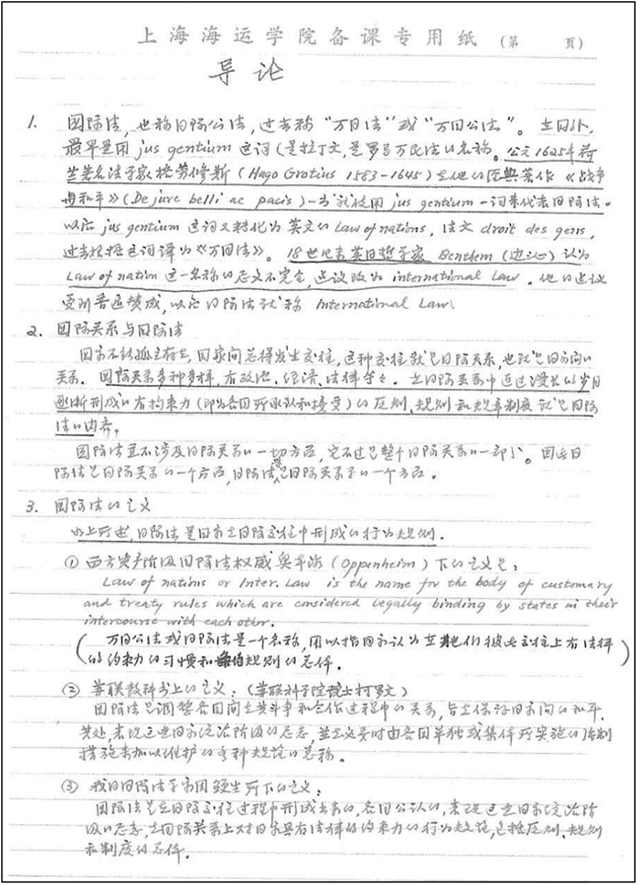 上海海运学院备课专用纸 (第 頁)
导论
1. 国际法,也称国际公法,过去称“万国法”或“万国公法”。在国外,
最早是用 jus gentium 这词(是拉丁文,是罗马万民法的名称。公元1625年荷
兰著名法学家格劳修斯 (Hugo Grotius 1583-1645) 在他的经典著作《战争
与和平》(De jure belli ac pacis)一书就使用 jus gentium 一词来代表国际法。
以后 jus gentium 这词又转化为英文的 Law of nations, 法文 droit des gens,
过去根据这词译为《万国法》。18世纪末英国哲学家 Bentham (边沁) 认为
Law of nation 这一名称的意义不完全,建议改为 international Law. 他的建议
受到普遍赞成,以后国际法就称 International Law.
2. 国际关系与国际法
国家不能孤立存在,国家间总得发生交往,这种交往就是国际关系,也就是国家间的
关系。国际关系多种多样,有政治、经济、法律等等。在国际关系中经过漫长的岁月
逐渐形成的有拘束力(即为各国所承认和接受)的原则、规则和规章制度就是国际
法的内容。
国际法并不涉及国际关系的一切方面,它不过是整个国际关系的一部分。因此国
际法是国际关系的一个方面,国际法是国际关系的一个方面。
3. 国际法的定义
如上所述,国际法是国家在国际交往中形成的行为规则.
① 西方资产阶级国际法权威奥本海 (Oppenheim) 下的定义是:
Law of nations or Inter. Law is the name for the body of customary
and treaty rules which are considered legally binding by states in their
intercourse with each other.
(万国公法或国际法是一个名称,用以指国家认为在其他们彼此交往上有法律
的约束力的习惯和条约规则的总体.)
② 苏联教科书上的定义:(苏联科学院院士柯罗文)
国际法是调整各国间在其斗争和合作过程中的关系,旨在保证国家间的和平
共处,表现这些国家统治阶级的意志,并在必要时由各国单独或集体所实施的强制
措施来加以维护的各种规范的总称。
③ 我国国际法学周鲠生所下的定义:
国际法是在国际交往过程中形成出来的,各国公认的,表现这些国家统治阶
级的意志,在国际关系上对国家具有法律的约束力的行为规范,包括原则、规则
和制度的总体。